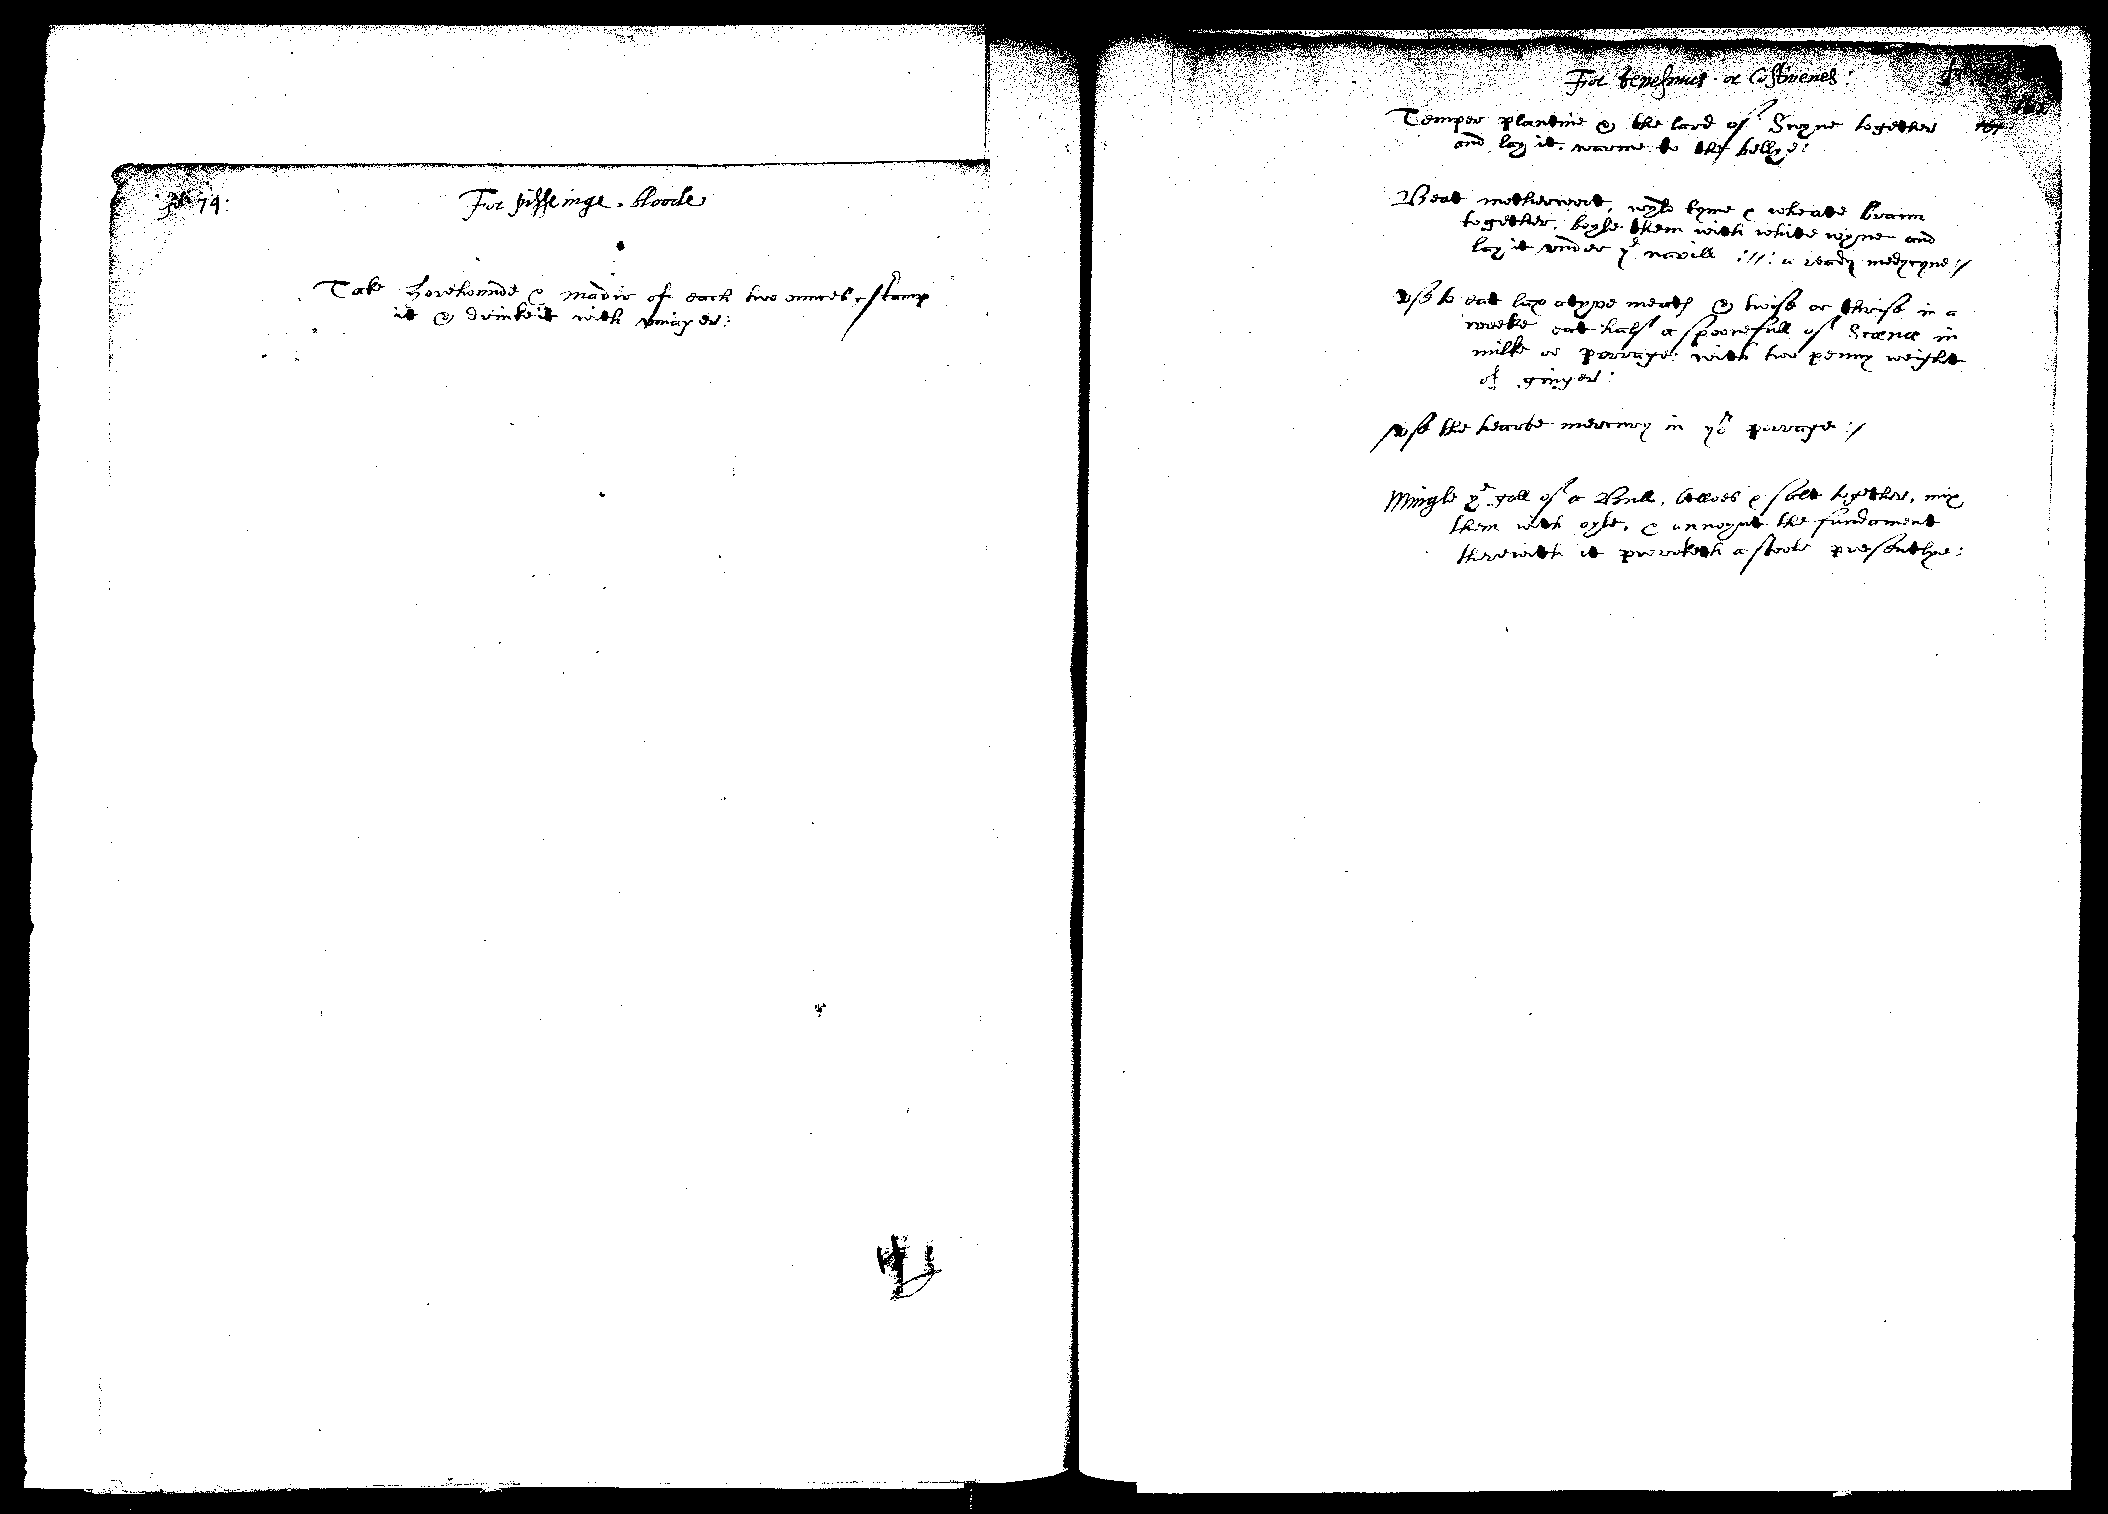 fol: 74:
For pisseinge bloode
Take horehounde & madir of each two ounces, stamp
it & drinke it with viniger:
For tenesmus or Costivenes:
Temper plantine & the lard of Swyne together
and lay it warme to the bellye:
Beat motherwort, wyld tyme & wheate brann
together, boyle them with white wyne and
lay it vnder yͤ navill :||: a ready medycyne:/
vse to eat laxatyve meats & twise or thrise in a
weeke eat half a spoonefull of Scæna in
milke or porrage with two penny weight
of ginger:
vse the hearbe mercury in yoͬ porrage:/
Mingle yͤ gall of a Bull, Alloes & salt together, mix
them with oyle, & annoynt the fundament
therewith it provoketh a stoole presentlye: